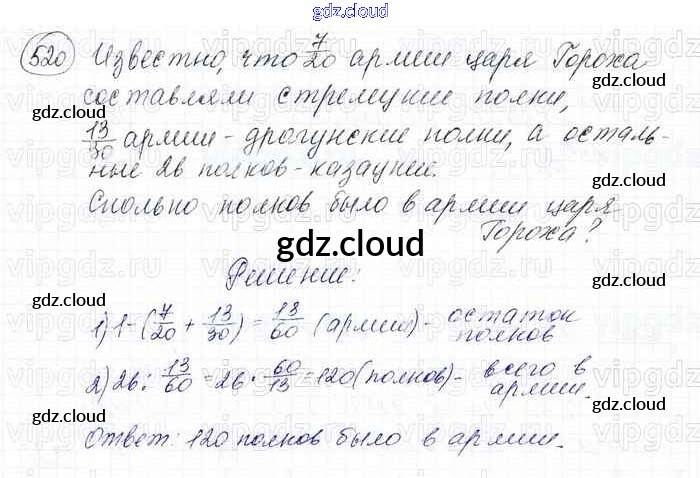 gdz.cloud
520 Известно, что 7/20 армии царя Гороха
составляли стрелецкие полки,
13/30 армии - драгунские полки, а осталь-
ные 26 полков - казацкие.
Сколько полков было в армии царя
Гороха?
gdz.cloud
Решение:
1) 1-(7/20 + 13/30) = 13/60 (армии) - остаток полков
2) 26 : 13/60 = 26 · 60/13 = 120 (полков) - всего в армии.
Ответ: 120 полков было в армии.